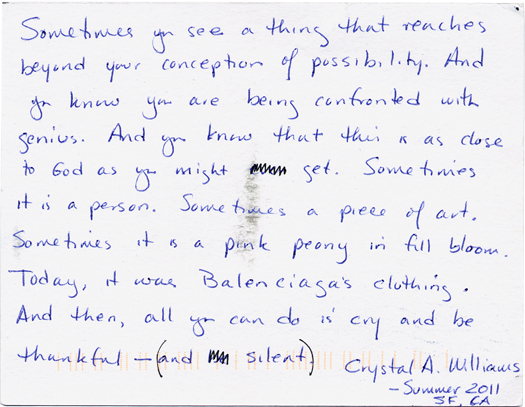 Sometimes yu see a thing that reaches
beyond your conception of possibility. And
yu know you are being confronted with
genius. And yu know that this is as close
to God as you might get. Sometimes
it is a person. Sometimes a piece of art.
Sometimes it is a pink peony in full bloom.
Today, it was Balenciaga's clothing.
And then, all yu can do is cry and be
thankful — (and silent.)
Crystal A. Williams
- Summer 2011
SF, CA